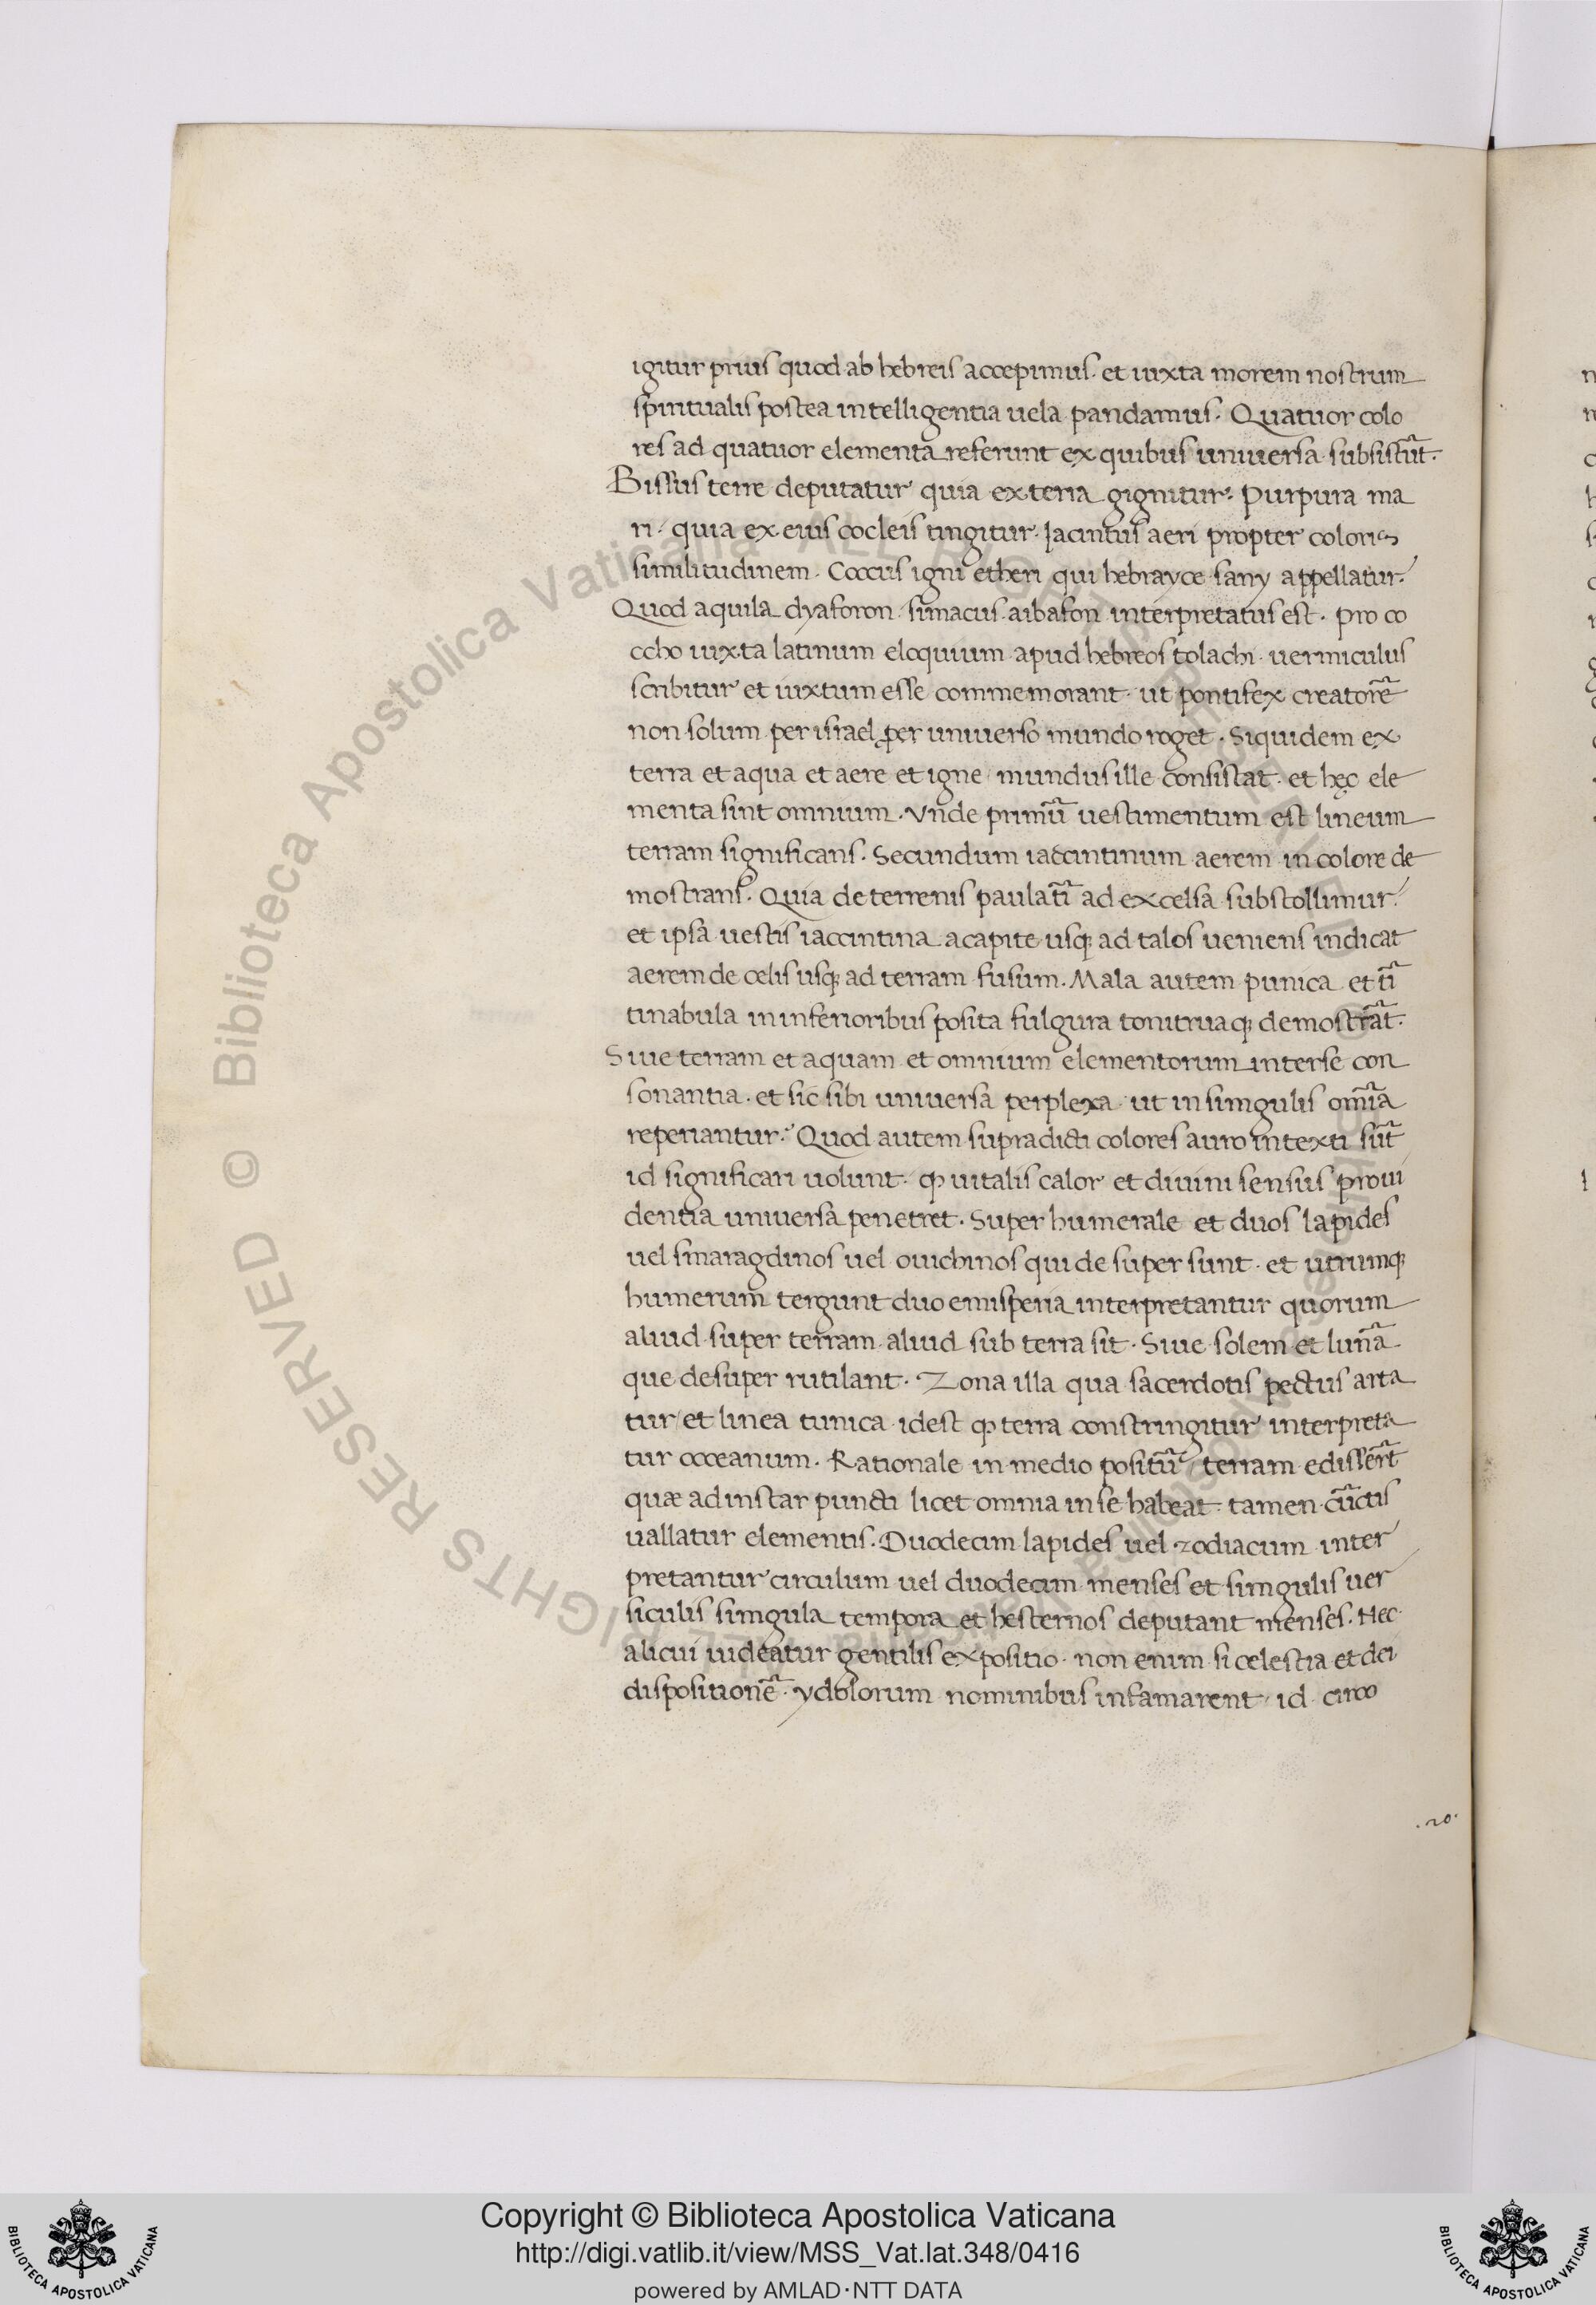 igitur prius quod ab hebreis accepimus. et iuxta morem nostrum
spiritualis postea intelligentia uela pandamus. Quatuor colo
res ad quatuor elementa referunt ex quibus uniuersa subsistūt.
Bissus terre deputatur quia ex terra gignitur. Purpura ma
ri. quia ex eius cocleis tingitur. Jacintus aeri propter coloris
similitudinem. Coccus igni etheri qui hebrayce sany appellatur.
Quod aquila dyaforon simacus aibafon interpretatus est. Pro co
ccho iuxta latinum eloquium apud hebreos tolachi uermiculus
scribitur et iuxtum esse commemorant. ut pontifex creatorē
non solum per israel per uniuerso mundo roget. Siquidem ex
terra et aqua et aere et igne mundus ille consistat. et hęc ele
menta sint omnium. Vnde primū uestimentum est lineum
terram significans. Secundum iaccintinum aerem in colore de
mostrans. Quia de terrenis paulatī ad excelsa substollimur.
et ipsa uestis iaccintina acapite usq; ad talos ueniens indicat
aerem de celis usq; ad terram fusum. Mala autem punica et tī
tinabula in inferioribus posita fulgura tonitruaq; demostrāt.
Siue terram et aquam et omnium elementorum interse con
sonantia. et sic sibi uniuersa perplexa ut in simgulis omīa
reperiantur. Quod autem supradicti colores auro intexti sūt
id significari uolunt. ꝙ uitalis calor et diuini sensus proui
dentia uniuersa penetret. Super humerale et duos lapides
uel smaragdinos uel ouichinos qui de super sunt. et utrumq;
humerum tergunt duo emisperia interpretantur quorum
aliud super terram aliud sub terra sit. Siue solem et lunā
que desuper rutilant. Zona illa qua sacerdotis pectus arta
tur et linea tunica idest ꝙ terra constringitur interpreta
tur occeanum. Rationale in medio positū terram edissērt
quæ adinstar puncti licet omnia in se habeat. tamen cūctis
uallatur elementis. Duodecim lapides uel zodiacum inter
pretantur circulum uel duodecim menses et simgulis uer
siculis simgula tempora et hesternos deputant menses. Nec
alicui uideatur gentilis expositio. non enim si celestia et dei
dispositionē ydolorum nominibus infamarent. id circo
.20.
Copyright © Biblioteca Apostolica Vaticana
http://digi.vatlib.it/view/MSS_Vat.lat.348/0416
powered by AMLAD·NTT DATA